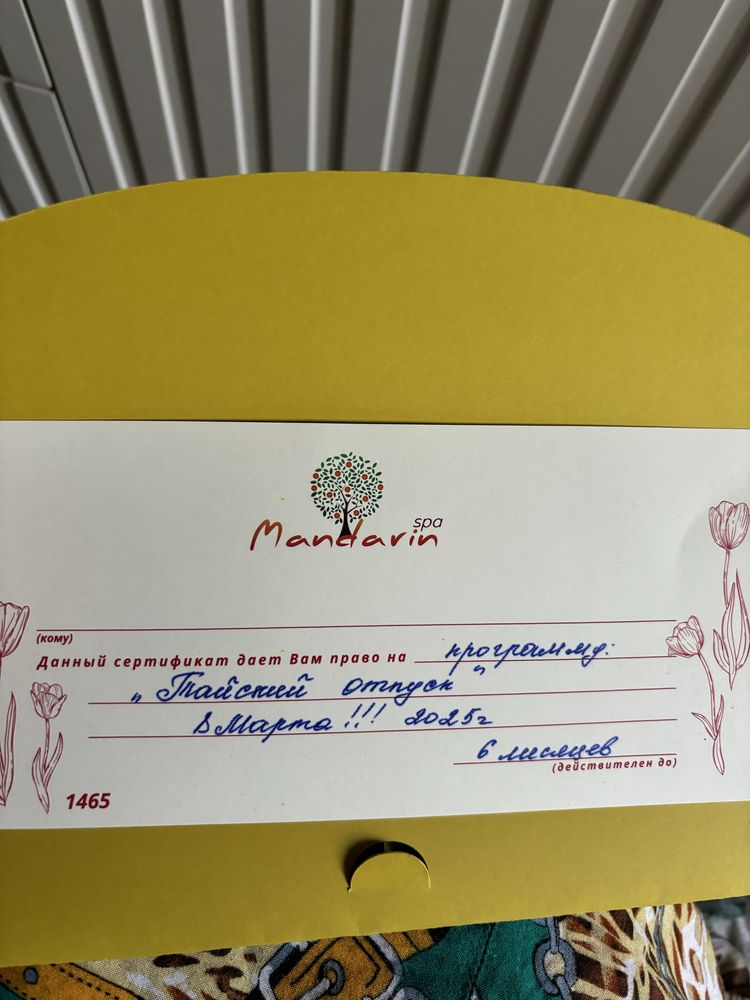 spa
Mandarin
(кому)
Данный сертификат дает Вам право на программу:
„Тайский отпуск"
8 Марта!!! 2025г
6 мисяцев
(действителен до)
1465